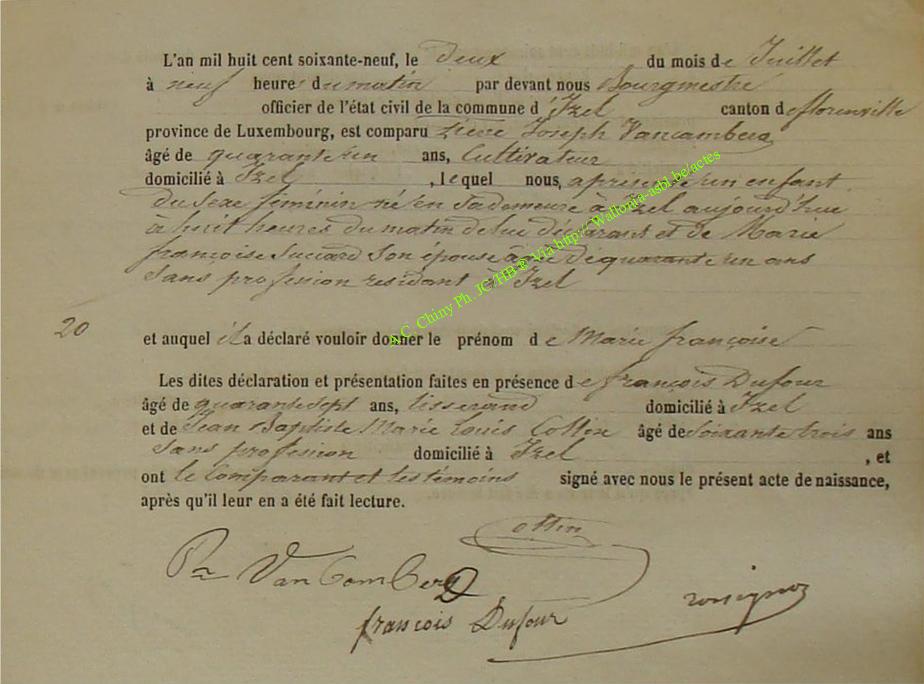 L'an mil huit cent soixante-neuf, le deux du mois de Juillet
à neuf heures du matin par devant nous Bourgmestre
officier de l'état civil de la commune d'Izel canton de florenville
province de Luxembourg, est comparu pierre Joseph Vancamberg
âgé de quarante un ans, Cultivateur
domicilié à Izel, lequel nous, a présenté un enfant
du sexe féminin né en sa demeure à Izel aujourd'hui
à huit heures du matin de lui déclarant et de Marie
françoise son épouse âgée de quarante un ans
sans profession residant à Izel
20
et auquel il a déclaré vouloir donner le prénom de Marie françoise
Les dites déclaration et présentation faites en présence de françois Dufour
âgé de quarante sept ans, tisserand domicilié à Izel
et de Jean Baptiste Marie Louis Collin âgé de soixante trois ans
sans profession domicilié à Izel, et
ont le Comparant et les témoins signé avec nous le présent acte de naissance,
après qu'il leur en a été fait lecture.
Van Camberg
françois Dufour
A.C. Chiny Ph. JC/HB ® Via http://Wallonia-asbl.be/actes